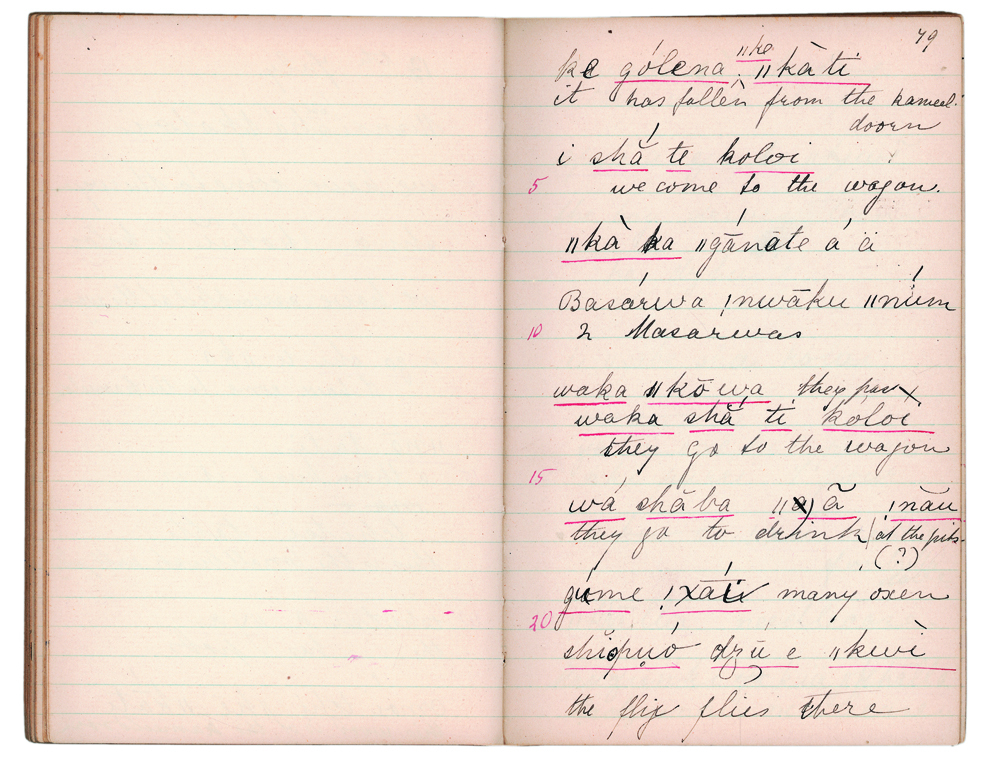 79
ǁke
ke gólena ǁkàti
it has fallen from the kameel-
doorn
i shā́ te koloi
5 we come to the wagon.
ǁkà ka ǁgānate á ä
Basárwa ǃnwāku ǁnúm
10 2 Masarwas
waka ǁkōwa they pass
waka shā ti kóloi
they go to the wagon
15
wá shāba ǁã ǃnāu
they go to drink (at the pits.
(?)
gume ǃxāti many oxen
20
dzū e ǁkwì
the fly flies there